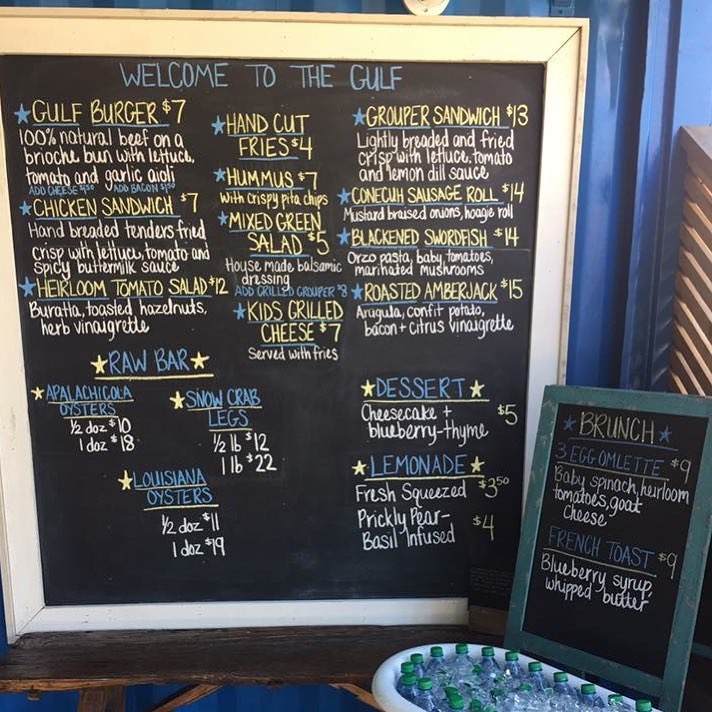 WELCOME TO THE GULF
GULF BURGER $7
100% natural beef on a
brioche bun with lettuce,
tomato and garlic aioli
ADD CHEESE $1.50 ADD BACON $1.50
CHICKEN SANDWICH $7
Hand breaded tenders fried
crisp with lettuce, tomato and
spicy buttermilk sauce
HEIRLOOM TOMATO SALAD $12
Buratta, toasted hazelnuts,
herb vinaigrette
HAND CUT
FRIES $4
HUMMUS $7
with crispy pita chips
MIXED GREEN
SALAD $5
House made balsamic
dressing
ADD GRILLED GROUPER $8
KIDS GRILLED
CHEESE $7
Served with fries
GROUPER SANDWICH $13
Lightly breaded and fried
crisp with lettuce, tomato
and lemon dill sauce
CONECUH SAUSAGE ROLL $14
Mustard braised onions, hoagie roll
BLACKENED SWORDFISH $14
Orzo pasta, baby tomatoes,
marinated mushrooms
ROASTED AMBERJACK $15
Arugula, confit potato,
bacon + citrus vinaigrette
RAW BAR
APALACHICOLA
OYSTERS
1/2 doz $10
1 doz $18
SNOW CRAB
LEGS
1/2 lb $12
1 lb $22
LOUISIANA
OYSTERS
1/2 doz $11
1 doz $19
DESSERT
Cheesecake +
blueberry-thyme $5
LEMONADE
Fresh Squeezed $3.50
Prickly Pear-
Basil Infused $4
BRUNCH
3 EGG OMLETTE $9
Baby spinach, heirloom
tomatoes, goat
cheese
FRENCH TOAST $9
Blueberry syrup,
whipped butter